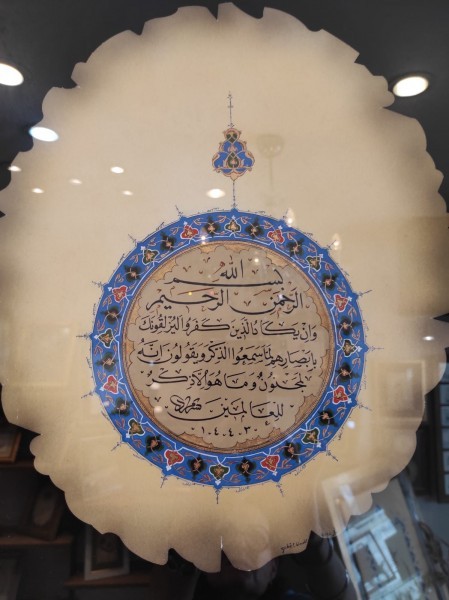 بسم الله
الرحمن الرحيم
وان يكاد الذين كفروا ليزلقونك
بابصارهم لما سمعوا الذكر ويقولون انه
لمجنون وما هو الا ذكر
للعالمين
١٤٠٣